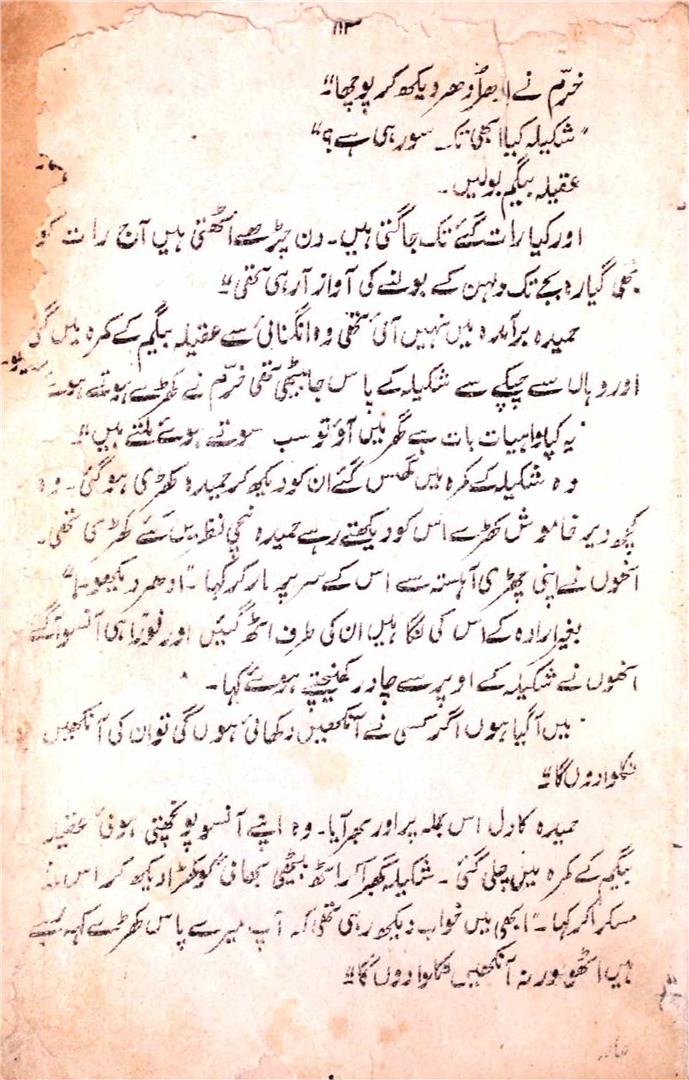 ۱۱۳
خرّم نے ادھر اُدھر دیکھ کر پوچھا"
"شکیلہ کیا ابھی تک سو رہی ہے؟"
عقیلہ بیگم بولیں۔
اور کیا رات گئے تک جاگتی ہیں۔ دن چڑھے اُٹھتی ہیں آج رات کو
بھی گیارہ بجے تک دلہن کے بولنے کی آواز آ رہی تھی"
حمیدہ برآمدہ میں نہیں آئی تھی وہ انگنائی سے عقیلہ بیگم کے کمرہ میں گئی
اور وہاں سے چپکے سے شکیلہ کے پاس جا بیٹھی تھی خرّم نے کھڑے ہوتے ہوئے
"یہ کیا واہیات بات ہے گھر میں آؤ تو سب سوتے ہوئے ملتے ہیں"
وہ شکیلہ کے کمرہ میں گھس گئے ان کو دیکھ کر حمیدہ کھڑی ہو گئی۔ وہ
کچھ دیر خاموش کھڑے اس کو دیکھتے رہے حمیدہ نیچی نظریں کئے کھڑی تھی۔
اُنھوں نے اپنی چھڑی آہستہ سے اس کے سر پر مار کر کہا۔ "ادھر دیکھو۔!"
بغیر ارادہ کے اس کی نگاہیں ان کی طرف اٹھ گئیں اور فوراً ہی آنسو آ گئے
اُنھوں نے شکیلہ کے اوپر سے چادر کھینچتے ہوئے کہا۔
"میں آ گیا ہوں اگر کسی نے آنکھیں دکھائی ہوں گی تو ان کی آنکھیں
نکلوا دوں گا"
حمیدہ کا دل اس جملہ پر اور بھر آیا۔ وہ اپنے آنسو پونچھتی ہوئی عقیلہ
بیگم کے کمرہ میں چلی گئی۔ شکیلہ گھبرا کر اٹھ بیٹھی بھائی کو کھڑا دیکھ کر اس نے
مسکرا کر کہا۔ "ابھی میں خواب دیکھ رہی تھی کہ آپ میرے پاس کھڑے کہہ رہے
ہیں اٹھو ورنہ آنکھیں نکلوا دوں گا"